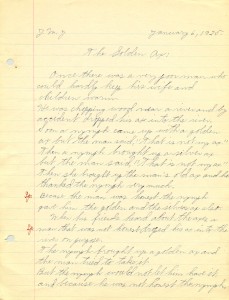 J.M.J. January 6, 1925
The Golden Ax
Once there was a very poor man who
could hardly keep his wife and
children warm.
He was chopping wood near a river and by
accident dropped his ax into the river.
Soon a nymph came up with a golden
ax but the man said, "that is not my ax."
Then a nymph brought up a silver ax
but the man said, "that is not my ax."
Then she brought up the man's old ax and he
thanked the nymph very much.
the man was honest the nymph
gave him the golden and the silver ax also.
When his friends heard about the ax a
man that was not honest dropped his ax into the
river on purpose.
The nymph brought up a golden ax and
the man tried to take it.
But the nymph would not let him have it
and because he was not honest the nymph